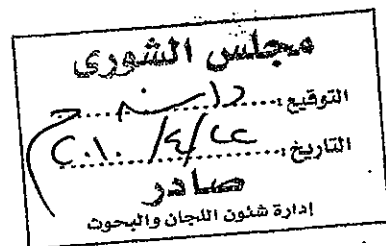 مجلس الشورى
التوقيع:
التاريخ: ٢٢/٤/٢٠١٠
صادر
إدارة شئون اللجان والبحوث